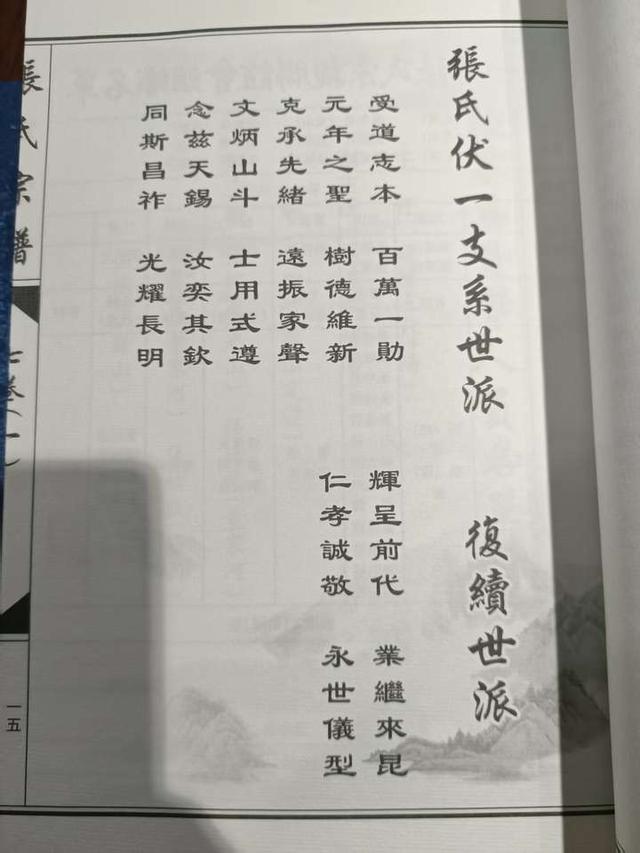 張氏伏一支系世派
受道志本 百萬一勛
元年之聖 樹德維新
克承先緒 遠振家聲
文炳山斗 士用式遵
念兹天錫 汝奕其欽
同斯昌祚 光耀長明
復續世派
輝呈前代 業繼來昆
仁孝誠敬 永世儀型
張氏宗譜
卷一
一五